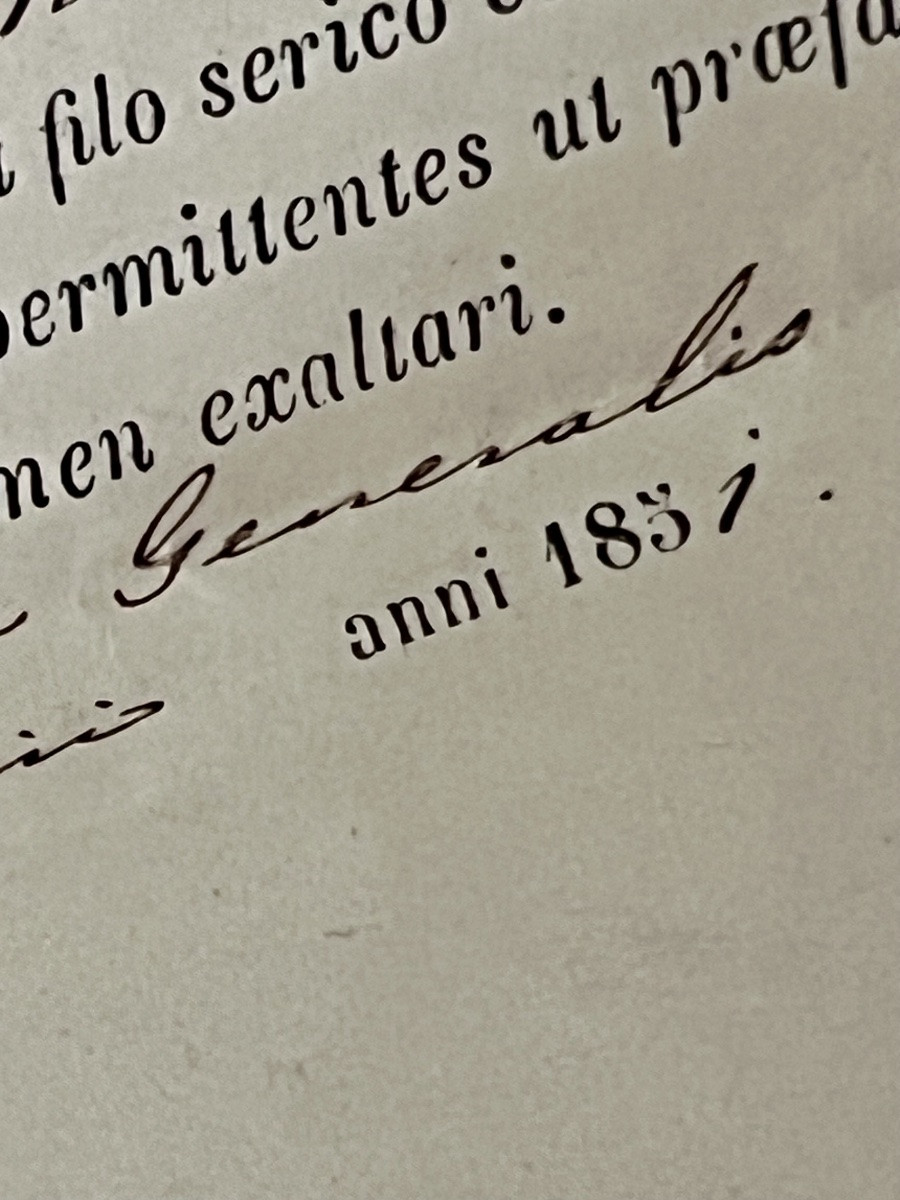 filo serico
permittentes ut præfa
men exaltari.
Generalis
anni 1851.